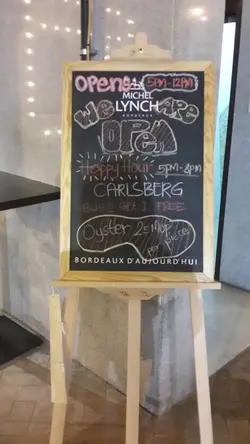 OPENS 5PM-12AM
MICHEL
LYNCH
BORDEAUX
We are
OPEN
Happy Hour 5PM-8PM
CARLSBERG
Buy 1 Get 1 FREE
Oyster 25 MOP
per
BORDEAUX D'AUJOURD'HUI